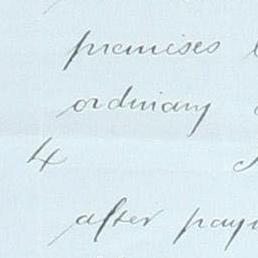 premises
ordinary
4
after